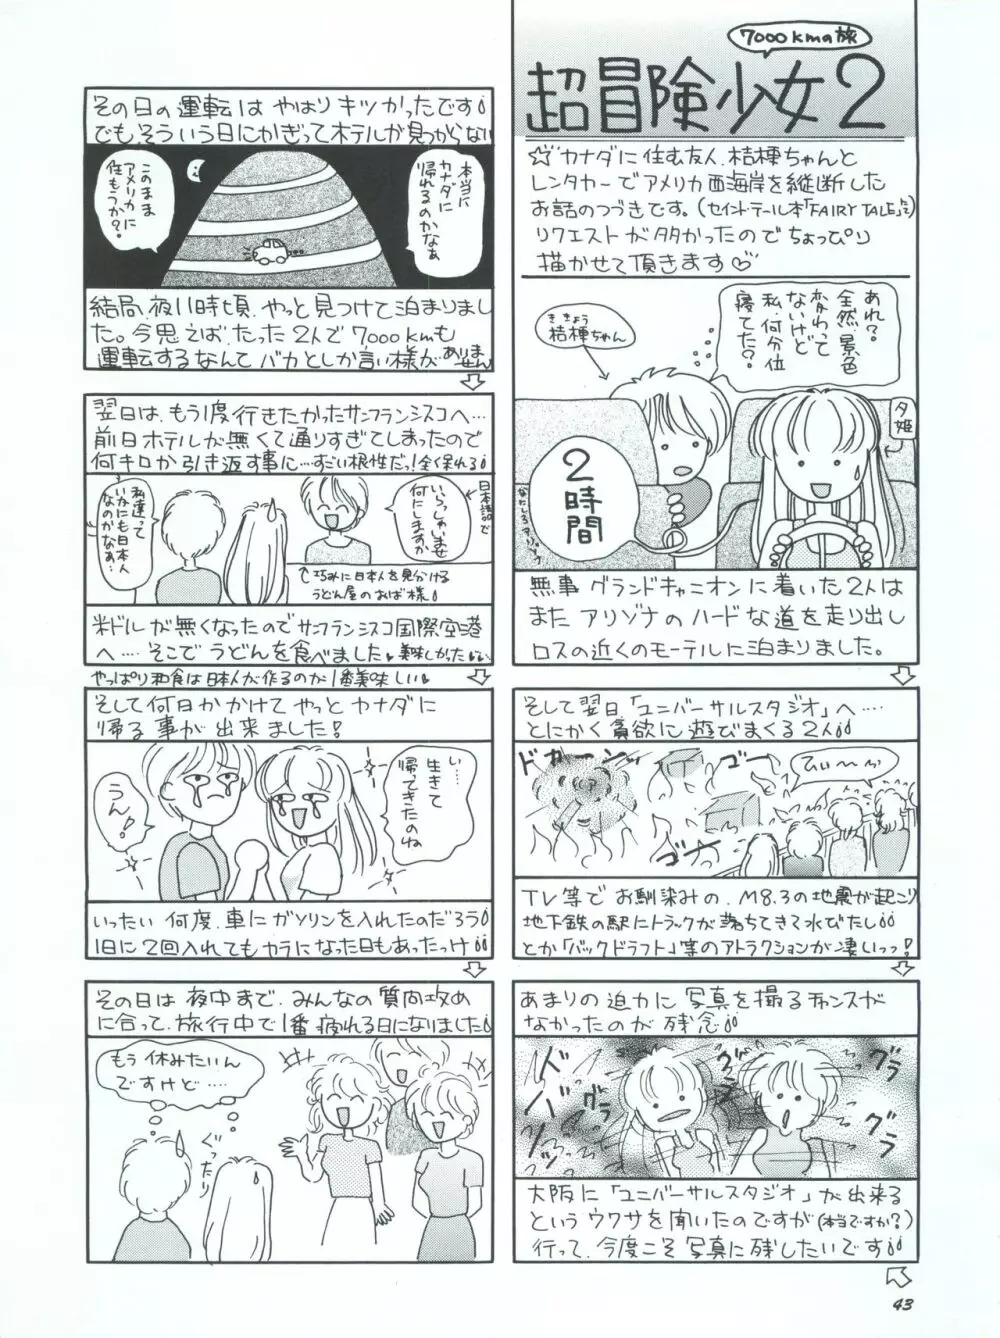 7000kmの旅
超冒険少女2
☆カナダに住む友人、桔梗ちゃんと
レンタカーでアメリカ西海岸を縦断した
お話のつづきです。(セイントテール本「FAIRY TALE」にて)
リクエストが多かったのでちょっぴり
描かせて頂きます♡
あれ?
全然景色
変わって
ないけど
私、何分位
寝てた?
ききょう
桔梗ちゃん
夕姫
2時間
無事グランドキャニオンに着いた2人は
またアリゾナのハードな道を走り出し
ロスの近くのモーテルに泊まりました。
そして翌日「ユニバーサルスタジオ」へ‥‥
とにかく貪欲に遊びまくる2人
ドカーーン
ゴーー
ゴーー
ひぃ〜〜っ
TV等でお馴染みの、M8.3の地震が起こり
地下鉄の駅にトラックが落ちてきて水びたし
とか「バックドラフト」等のアトラクションが凄いっっ!
あまりの迫力に写真を撮るチャンスが
なかったのが残念
グラ
グラ
グラ
グラ
大阪に「ユニバーサルスタジオ」が出来る
というウワサを聞いたのですが(本当ですか?)
行って、今度こそ写真に残したいです
その日の運転はやはりキツかったです
でもそういう日にかぎってホテルが見つからない
本当に
カナダに
帰れるのかなぁ
このまま
アメリカに
住もうか?
結局、夜11時頃、やっと見つけて泊まりまし
た。今思えば、たった2人で7000kmも
運転するなんてバカとしか言い様がありません
翌日は、もう1度行きたかったサンフランシスコへ…
前日ホテルが無くて通りすぎてしまったので
何キロか引き返す事に…すごい根性だっ!全保れる
日本語で
いらっしゃいませ
何にしますか
私達って
いかにも日本人
なのかなぁ…
↑巧みに日本人を見分ける
うどん屋のおば様
米ドルが無くなったのでサンフランシスコ国際空港
へ‥‥そこでうどんを食べました 美味しかった
やっぱり和食は日本人が作るのが1番美味しい
そして何日かかけてやっとカナダに
帰る事が出来ました!
い‥‥
生きて
帰ってきたのね
うん!
いったい何度、車にガソリンを入れたのだろう
1日に2回入れてもカラになった日もあったっけ
その日は夜中まで、みんなの質問攻め
に合って、旅行中で1番疲れる日になりました
もう休みたいん
ですけど‥‥
ぐったり
43